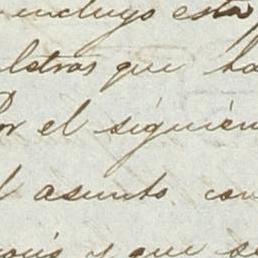 incluyo esta
letras que ha
Por el siguien
l asunto con
y que se